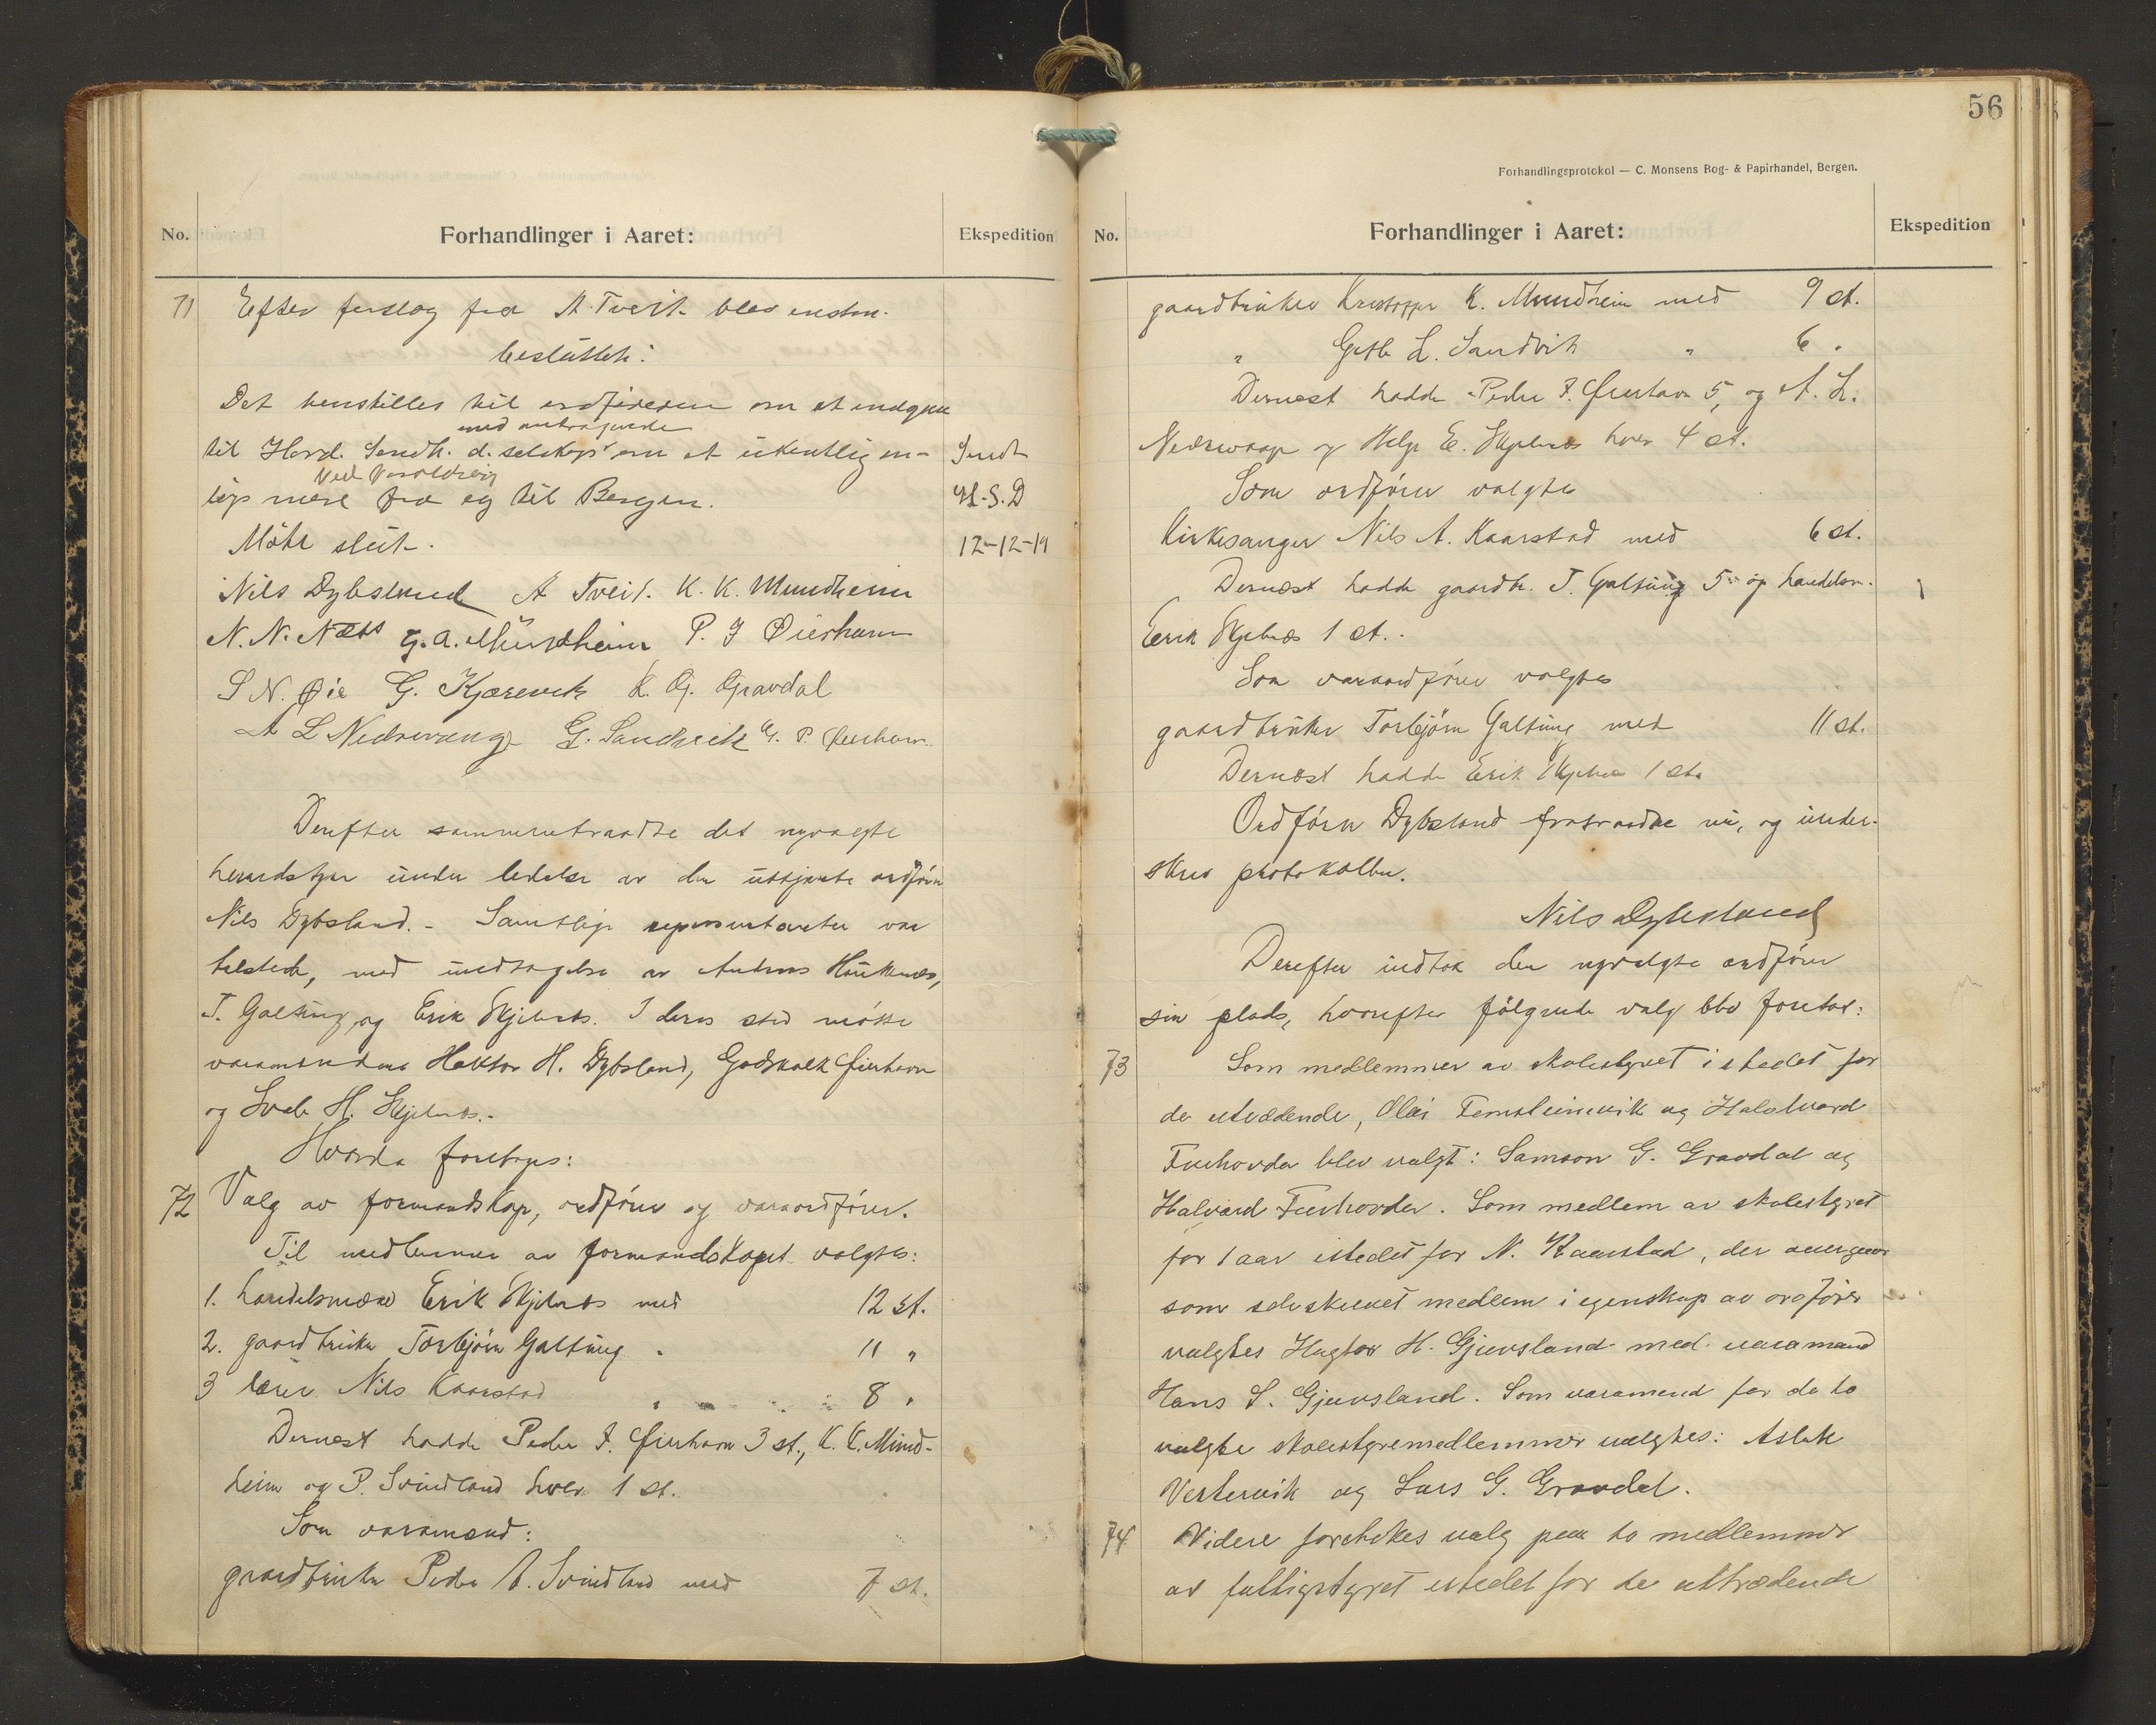 No.
Forhandlinger i Aaret:
Ekspedition
71 Efter forslag fra A. Tveit blev enstem.
besluttet:
Det henstilles til ordføreren om at indgaa
med andragende
til Hard. Søndh. d. selskap om et ukentlig an-
ved Varaldsøy
løp mere fra og til Bergen.
Sendt
H.S.D
12-12-19
Møte slut.
Nils Dybsland A Tveit. K. K. Mundheim
N. N. Næs G. A. Mundheim P. J Øierhavn
S N. Øie G. Kjærevik K. G. Gravdal
A L Nedrevaage G. Sandvik G. P. Øierhavn.
Derefter sammentraadte det nyvalgte
herredstyre under ledelse av den utskjønte ordfører
Nils Dybsland. - Samtlige representanter var
tilstede, med undtagelse av Anders Hauknæs,
T. Galtung, og Erik Skjelnæs. I deres sted møtte
varamændene Hektor H. Dybsland, Godskalk Øierhavn
og H. Skjelnæs.-
Hvorda foretoges:
72 Valg av formandskap, ordfører og varaordfører.
Til medlemmer av formandskapet valgtes:
1. handelsmand Erik Skjelnæs med 12 st.
2. gaardbruker Torbjørn Galtung " 11 "
3 lærer Nils Kaarstad " 8 "
Dernæst hadde Peder J. Øierhavn 3 st., K. K. Mund-
heim og P. Svindland hver 1 st.
Som varamænd:
gaardbruker Peder A. Svindland med 7 st.
56
Forhandlingsprotokol — C. Monsens Bog- & Papirhandel, Bergen.
No.
Forhandlinger i Aaret:
Ekspedition
gaardbruker Kristoffer K. Mundheim med 9 st.
" L. Sandvik " 6 "
Dernæst hadde Peder J. Øierhavn 5, og A. L.
Nedrevaage og Helge E. Skjelnæs hver 4 st.
Som ordfører valgtes
Kirkesanger Nils A. Kaarstad med 6 st.
Dernæst hadde gaardb. T. Galtung 5 og handelsm.
Erik Skjelnæs 1 st..
Som varaordfører valgtes
gaardbruker Torbjørn Galtung med 11 st.
Dernæst hadde Erik Skjelnæs 1 st.
Ordfører Dybsland fratraadte nu, og under-
skrev protokollen.
Nils Dybsland
Derefter indtok den nyvalgte ordfører
sin plads, hvorefter følgende valg blev foretat:
73 Som medlemmer av skolestyret i stedet for
de utrædende, Olai Femsteinevik og Halvard
Fuehovda blev valgt: Samson G. Gravdal og
Halvard Fuehovda. Som medlem av skolestyret
for 1 aar istedet for N. Kaarstad, der overgaar
som selvskrevet medlem i egenskap av ordfører
valgtes Hagtor H. Gjuvsland med varamand
Hans S. Gjuvsland. Som varamænd for de to
valgte skolestyremedlemmer valgtes: Aslak
Vestervik og Lars G. Gravdal.
74 Videre foretokes valg paa to medlemmer
av fattigstyret istedet for de uttrædende